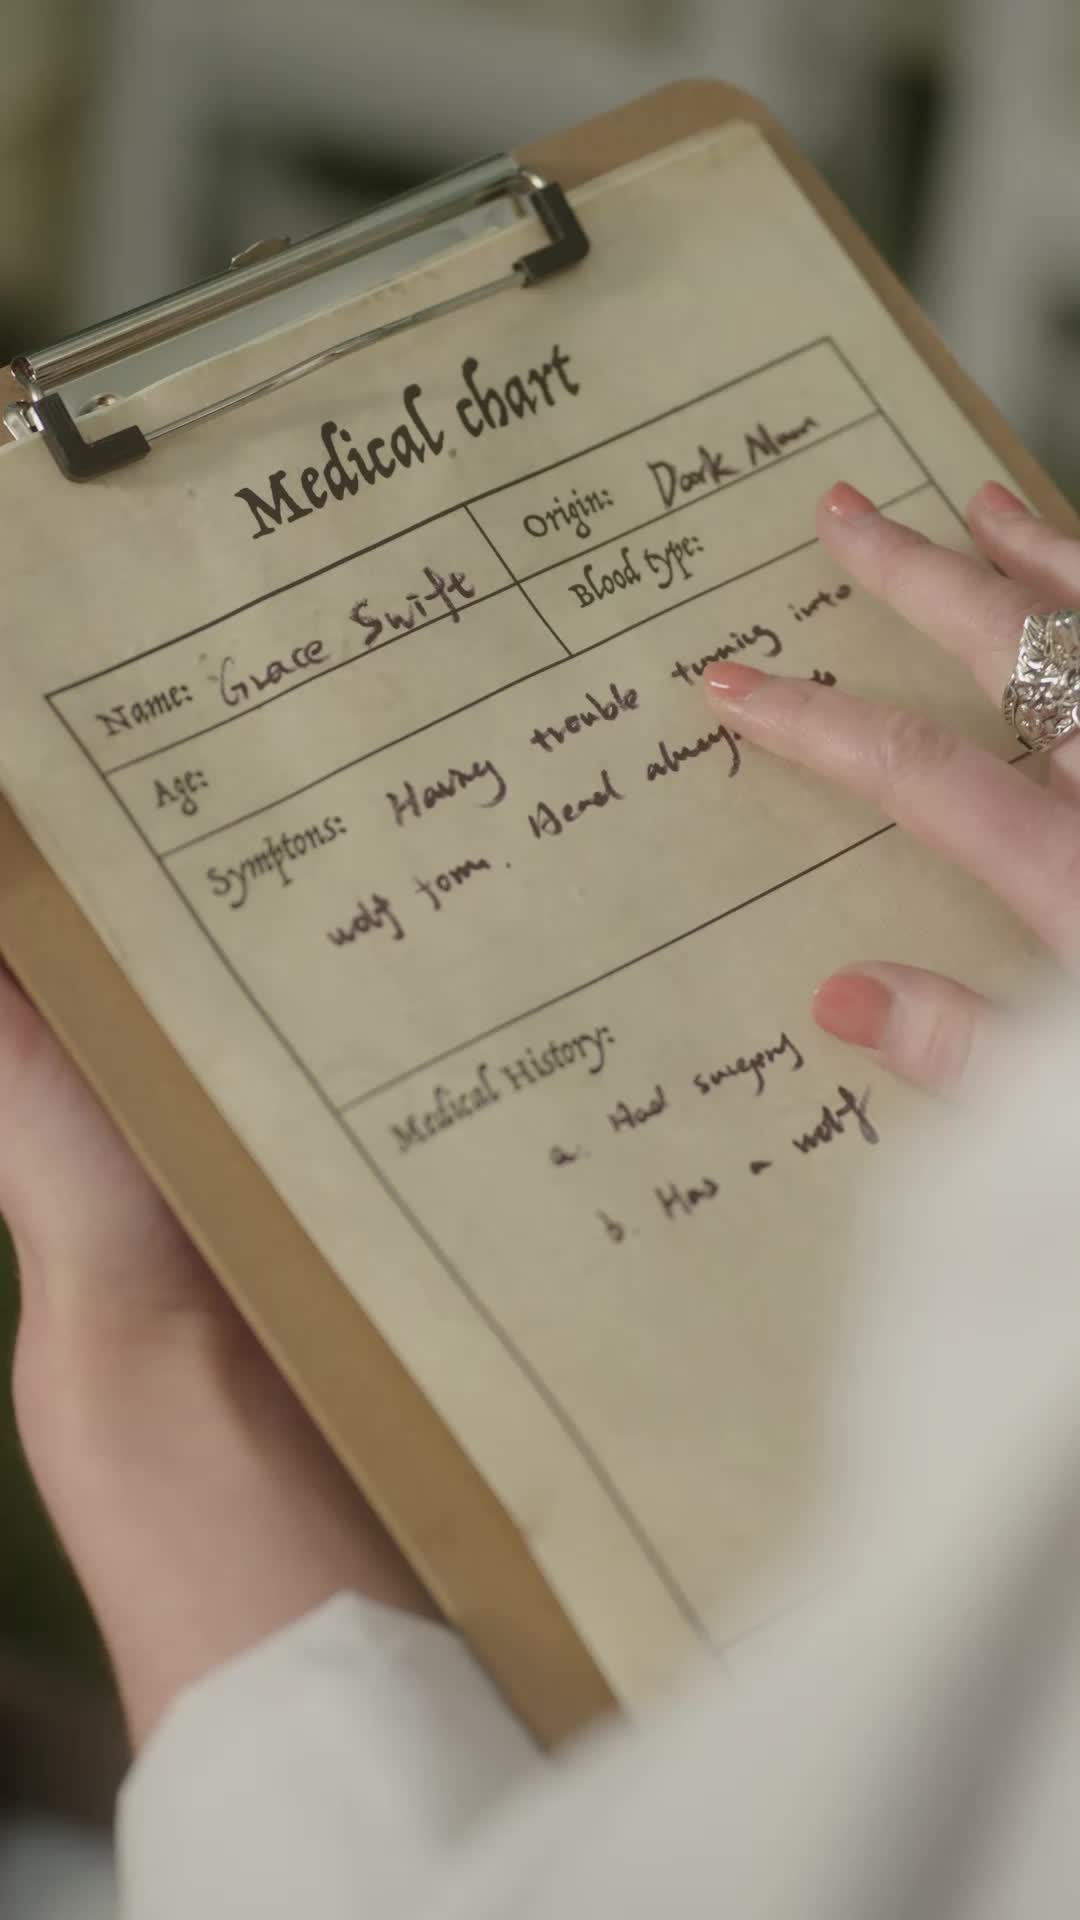 Medical chart
Name: Grace Swift
Origin: Dark Moon
Age:
Blood type:
Symptons: Having trouble turning into
wolf form. Head always
Medical History:
a. Had surgery
b. Has a wolf